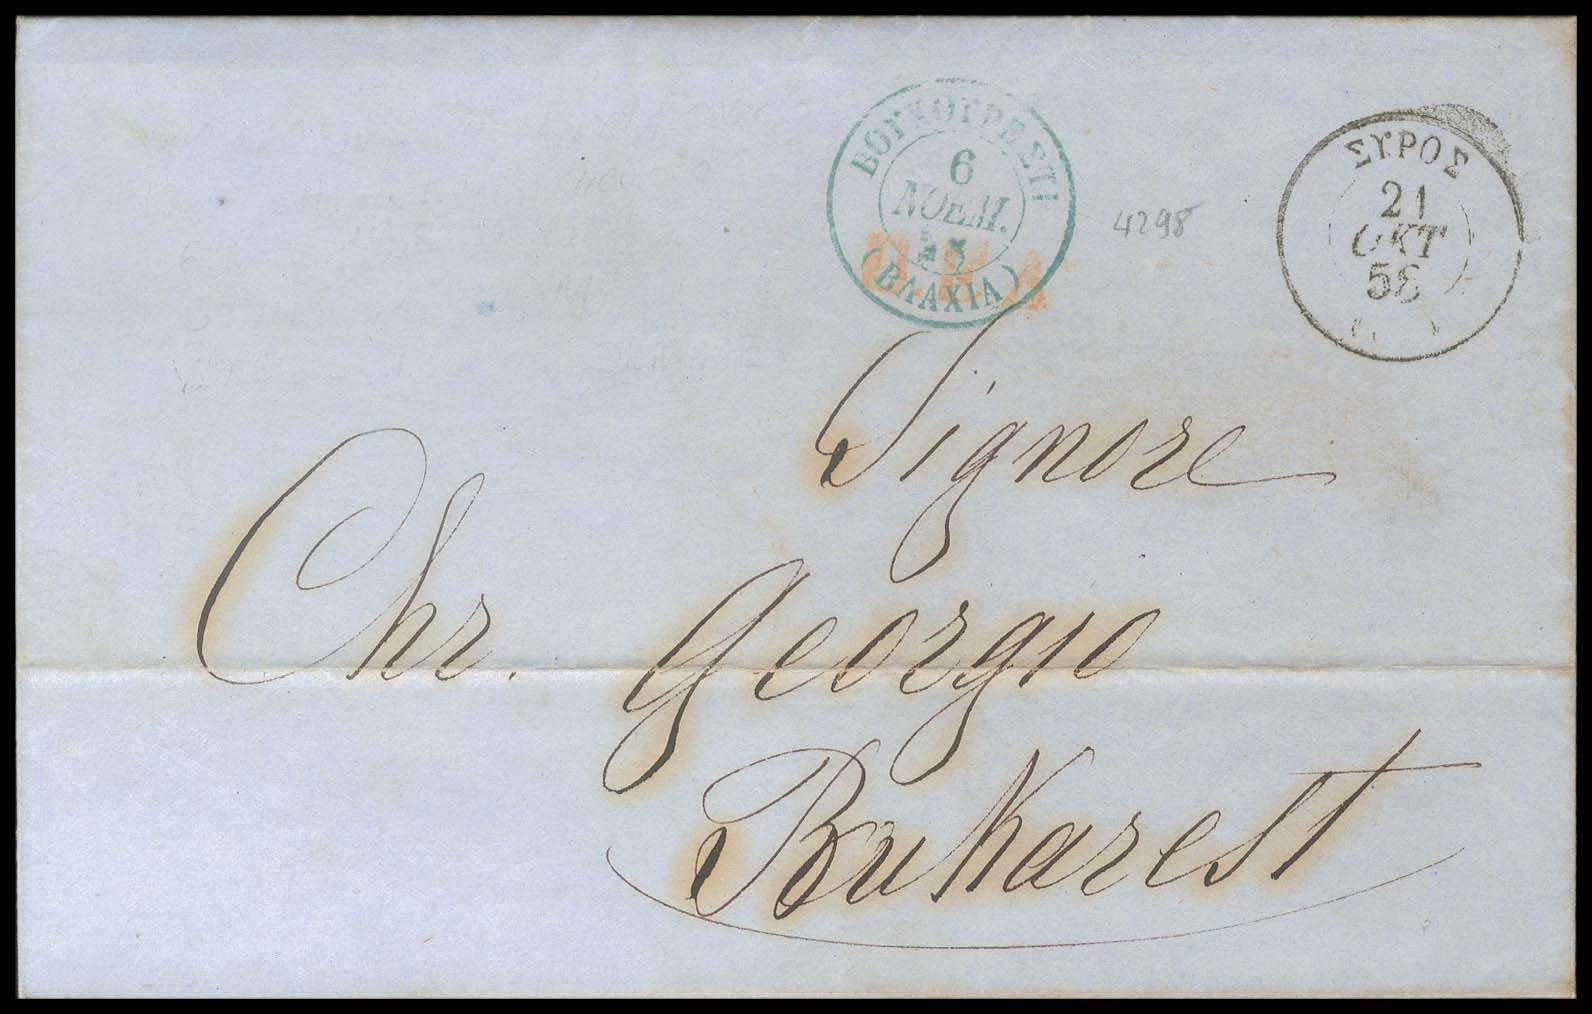 ΒΟΥΚΟΥΡΕΣΤΙ
6
ΝΟΕΜ.
(ΒΛΑΧΙΑ)
4298
ΣΥΡΟΣ
21
ΟΚΤ
Signore
Chr. Georgio
Bukarest